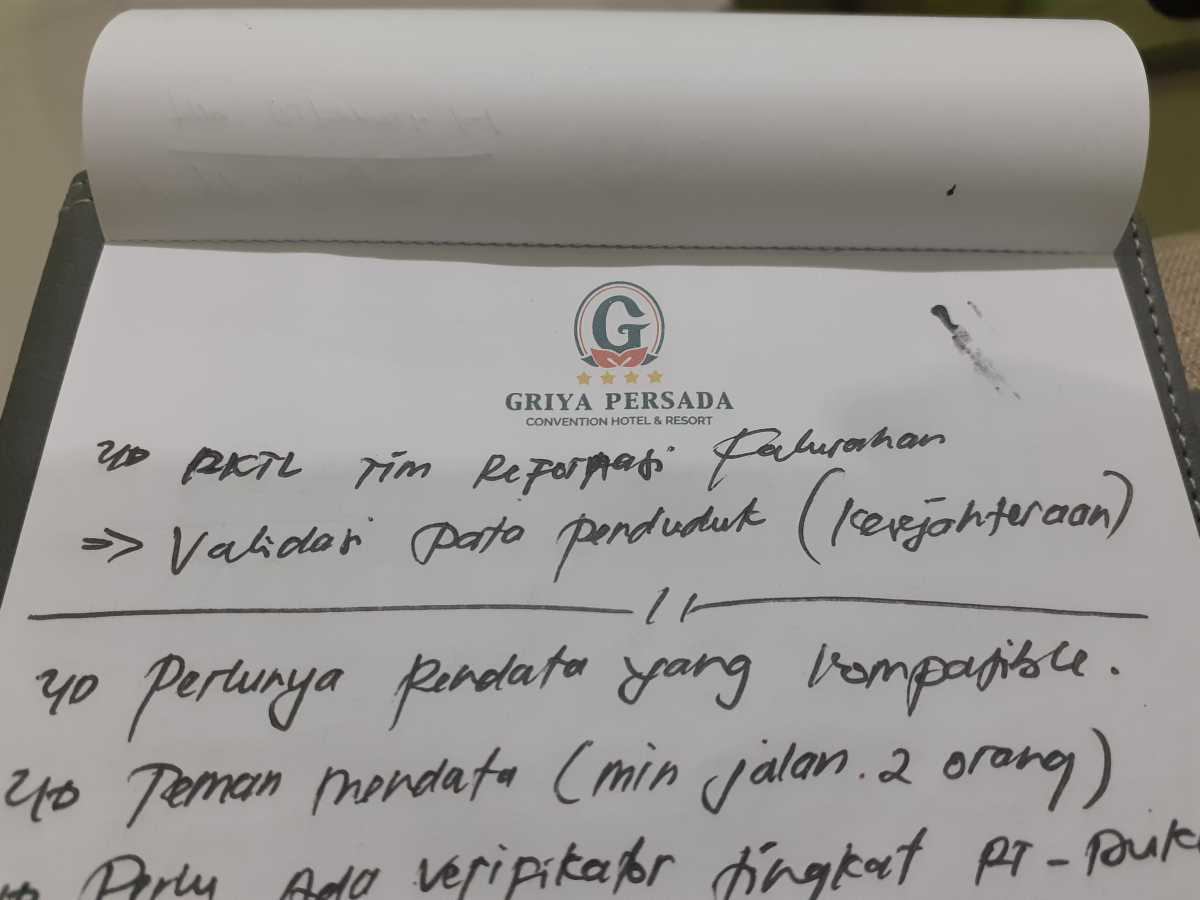 G
GRIYA PERSADA
CONVENTION HOTEL & RESORT
RKTL Tim Reformasi Kalurahan
=> Validasi Data penduduk (Kesejahteraan)
Perlunya Pendata yang kompatible.
Teman mendata (min jalan. 2 orang)
Perlu Ada Verifikator tingkat RT - Duk